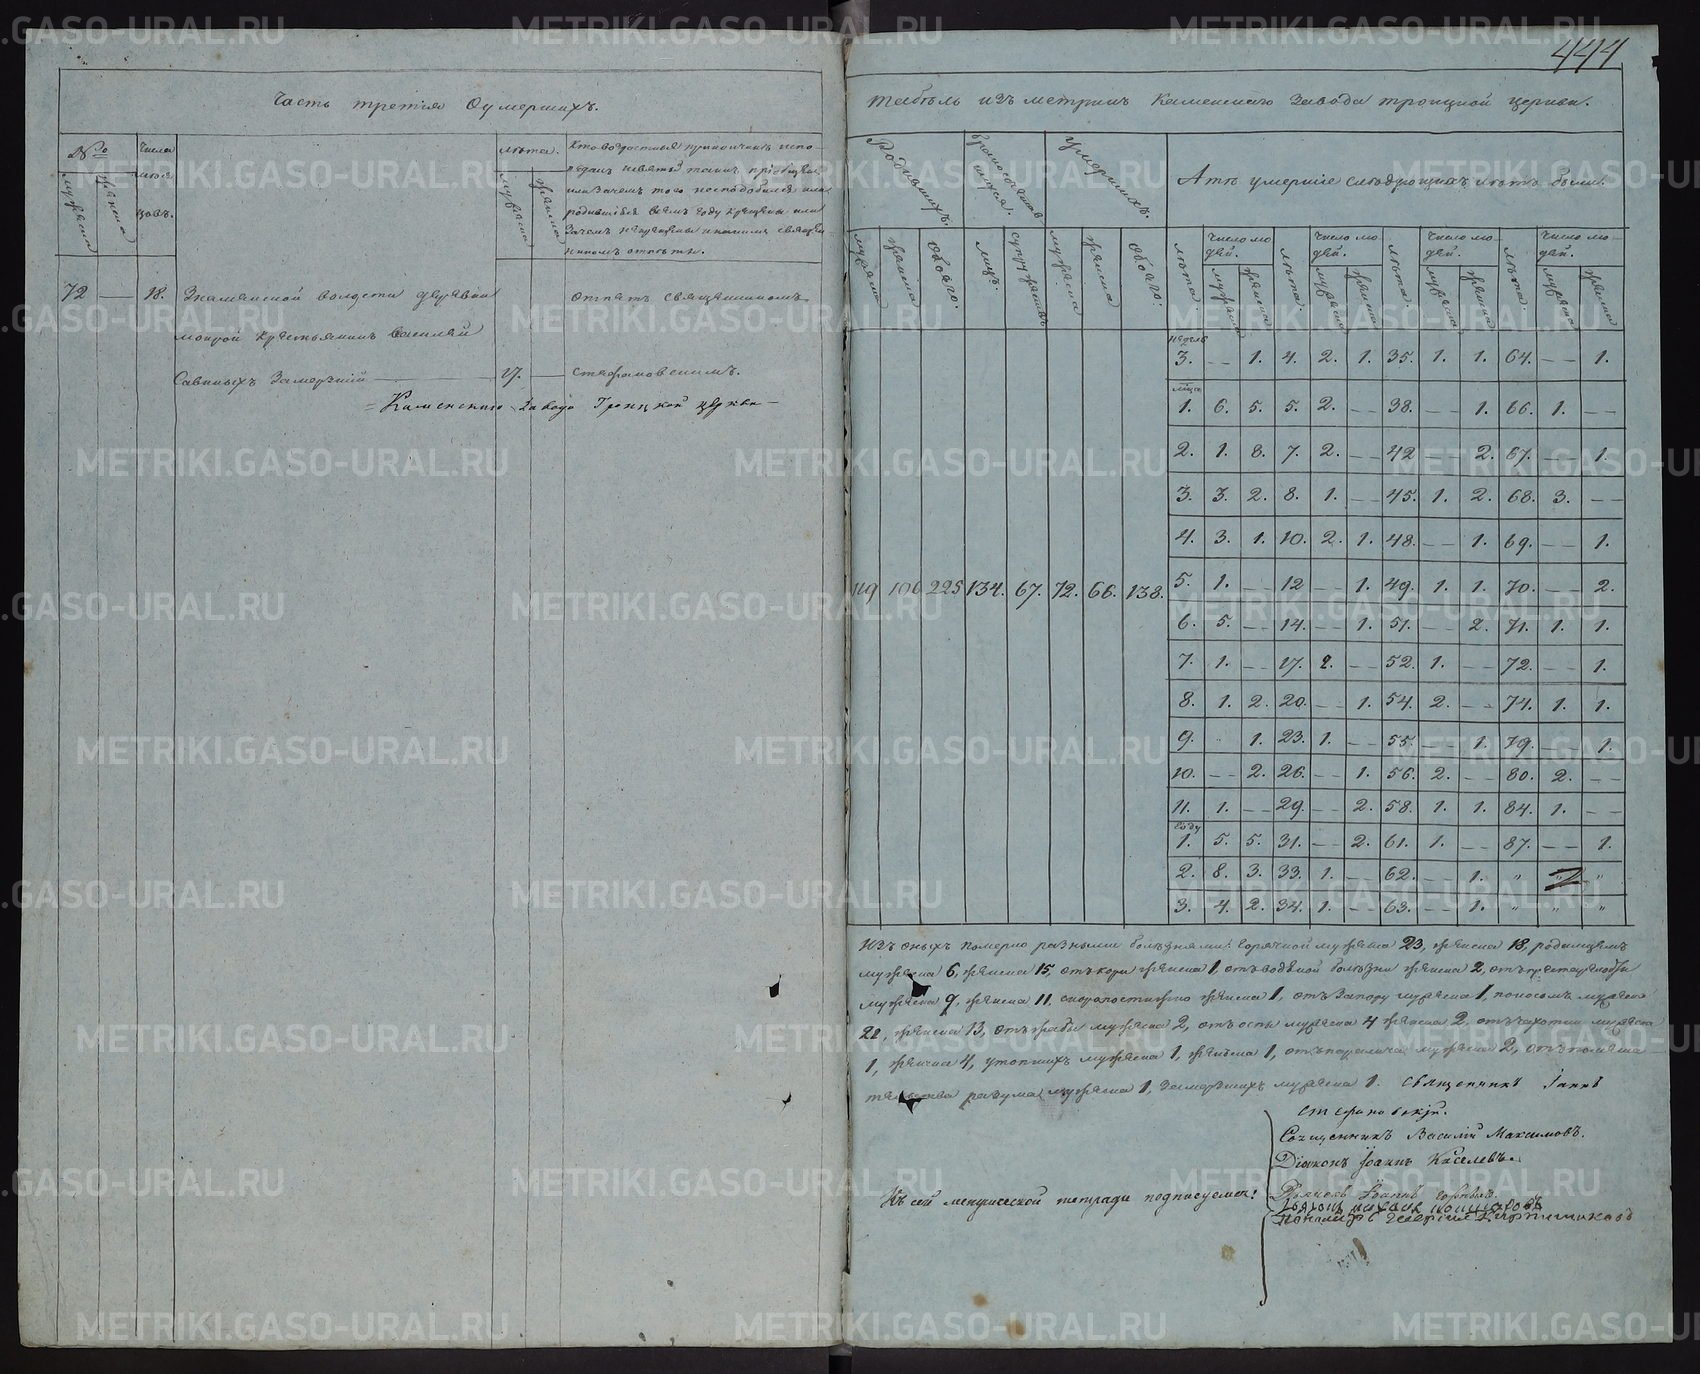 Часть третія О умершихъ.
№
мужеска
женска
числа
мѣся
цовъ.
лѣта.
мужеска
женска
72 — 18. Знаменской волости деревни
мокрой крестьянинъ Василей
Савиныхъ Замерзшій — 17. —
Отпетъ священникомъ
Стефановскимъ.
= Каменскаго завода Троицкой церкви —
444
табѣль изъ метрикъ Каменскаго завода троицкой церкви.
Родившихъ.
Умершихъ.
А тѣ умершіе слѣдующихъ лѣтъ были:
мужеска
женска
обоего.
лицъ.
супружествъ
мужеска
женска
обоего.
лѣта. число людей. мужеска женска
лѣта. число людей. мужеска женска
лѣта. число людей. мужеска женска
лѣта. число людей. мужеска женска
119 106 225 134. 67. 72. 66. 138.
недель
3. — 1. 4. 2. 1. 35. 1. 1. 64. — 1.
1. 6. 5. 5. 2. — 38. — 1. 66. 1. —
2. 1. 8. 7. 2. — 42 — 2. 67. — 1.
3. 3. 2. 8. 1. — 45. 1. 2. 68. 3. —
4. 3. 1. 10. 2. 1. 48. — 1. 69. — 1.
5. 1. — 12 — 1. 49. 1. 1. 70. — 2.
6. 5. — 14. — 1. 51. — 2. 71. 1. 1.
7. 1. — 17. 2. — 52. 1. — 72. — 1.
8. 1. 2. 20. — 1. 54. 2. — 74. 1. 1.
9. — 1. 23. 1. — 55. — 1. 79. — 1.
10. — 2. 26. — 1. 56. 2. — 80. 2. —
11. 1. — 29. — 2. 58. 1. 1. 84. 1. —
году
1. 5. 5. 31. — 2. 61. 1. — 87. — 1.
2. 8. 3. 33. 1. — 62. — 1. " "
3. 4. 2. 34. 1. — 63. — 1. " " "
Изъ оныхъ померло разными болѣзнями: горячкой мужеска 23, женска 18, родимцемъ
мужеска 6, женска 15, отъ кори женска 1, отъ водяной болѣзни женска 2,
мужеска 9, женска 11, скоропостижно женска 1, отъ Запору мужеска 1, поносомъ мужеска
22, женска 13, мужеска 2, отъ оспы мужеска 4 женска 2, отъ чахотки мужеска
1, женска 4, утопшихъ мужеска 1, женска 1, отъ паралича мужеска 2,
разума мужеска 1, замерзшихъ мужеска 1. священникъ Іаннъ
Стефановскій.
Священникъ Василій Максимовъ.
Діаконъ Іоаннъ Киселевъ.
Къ сей метрической тетради подписуемся:
Дьячекъ Іоаннъ
Пономарь Георгій
METRIKI.GASO-URAL.RU